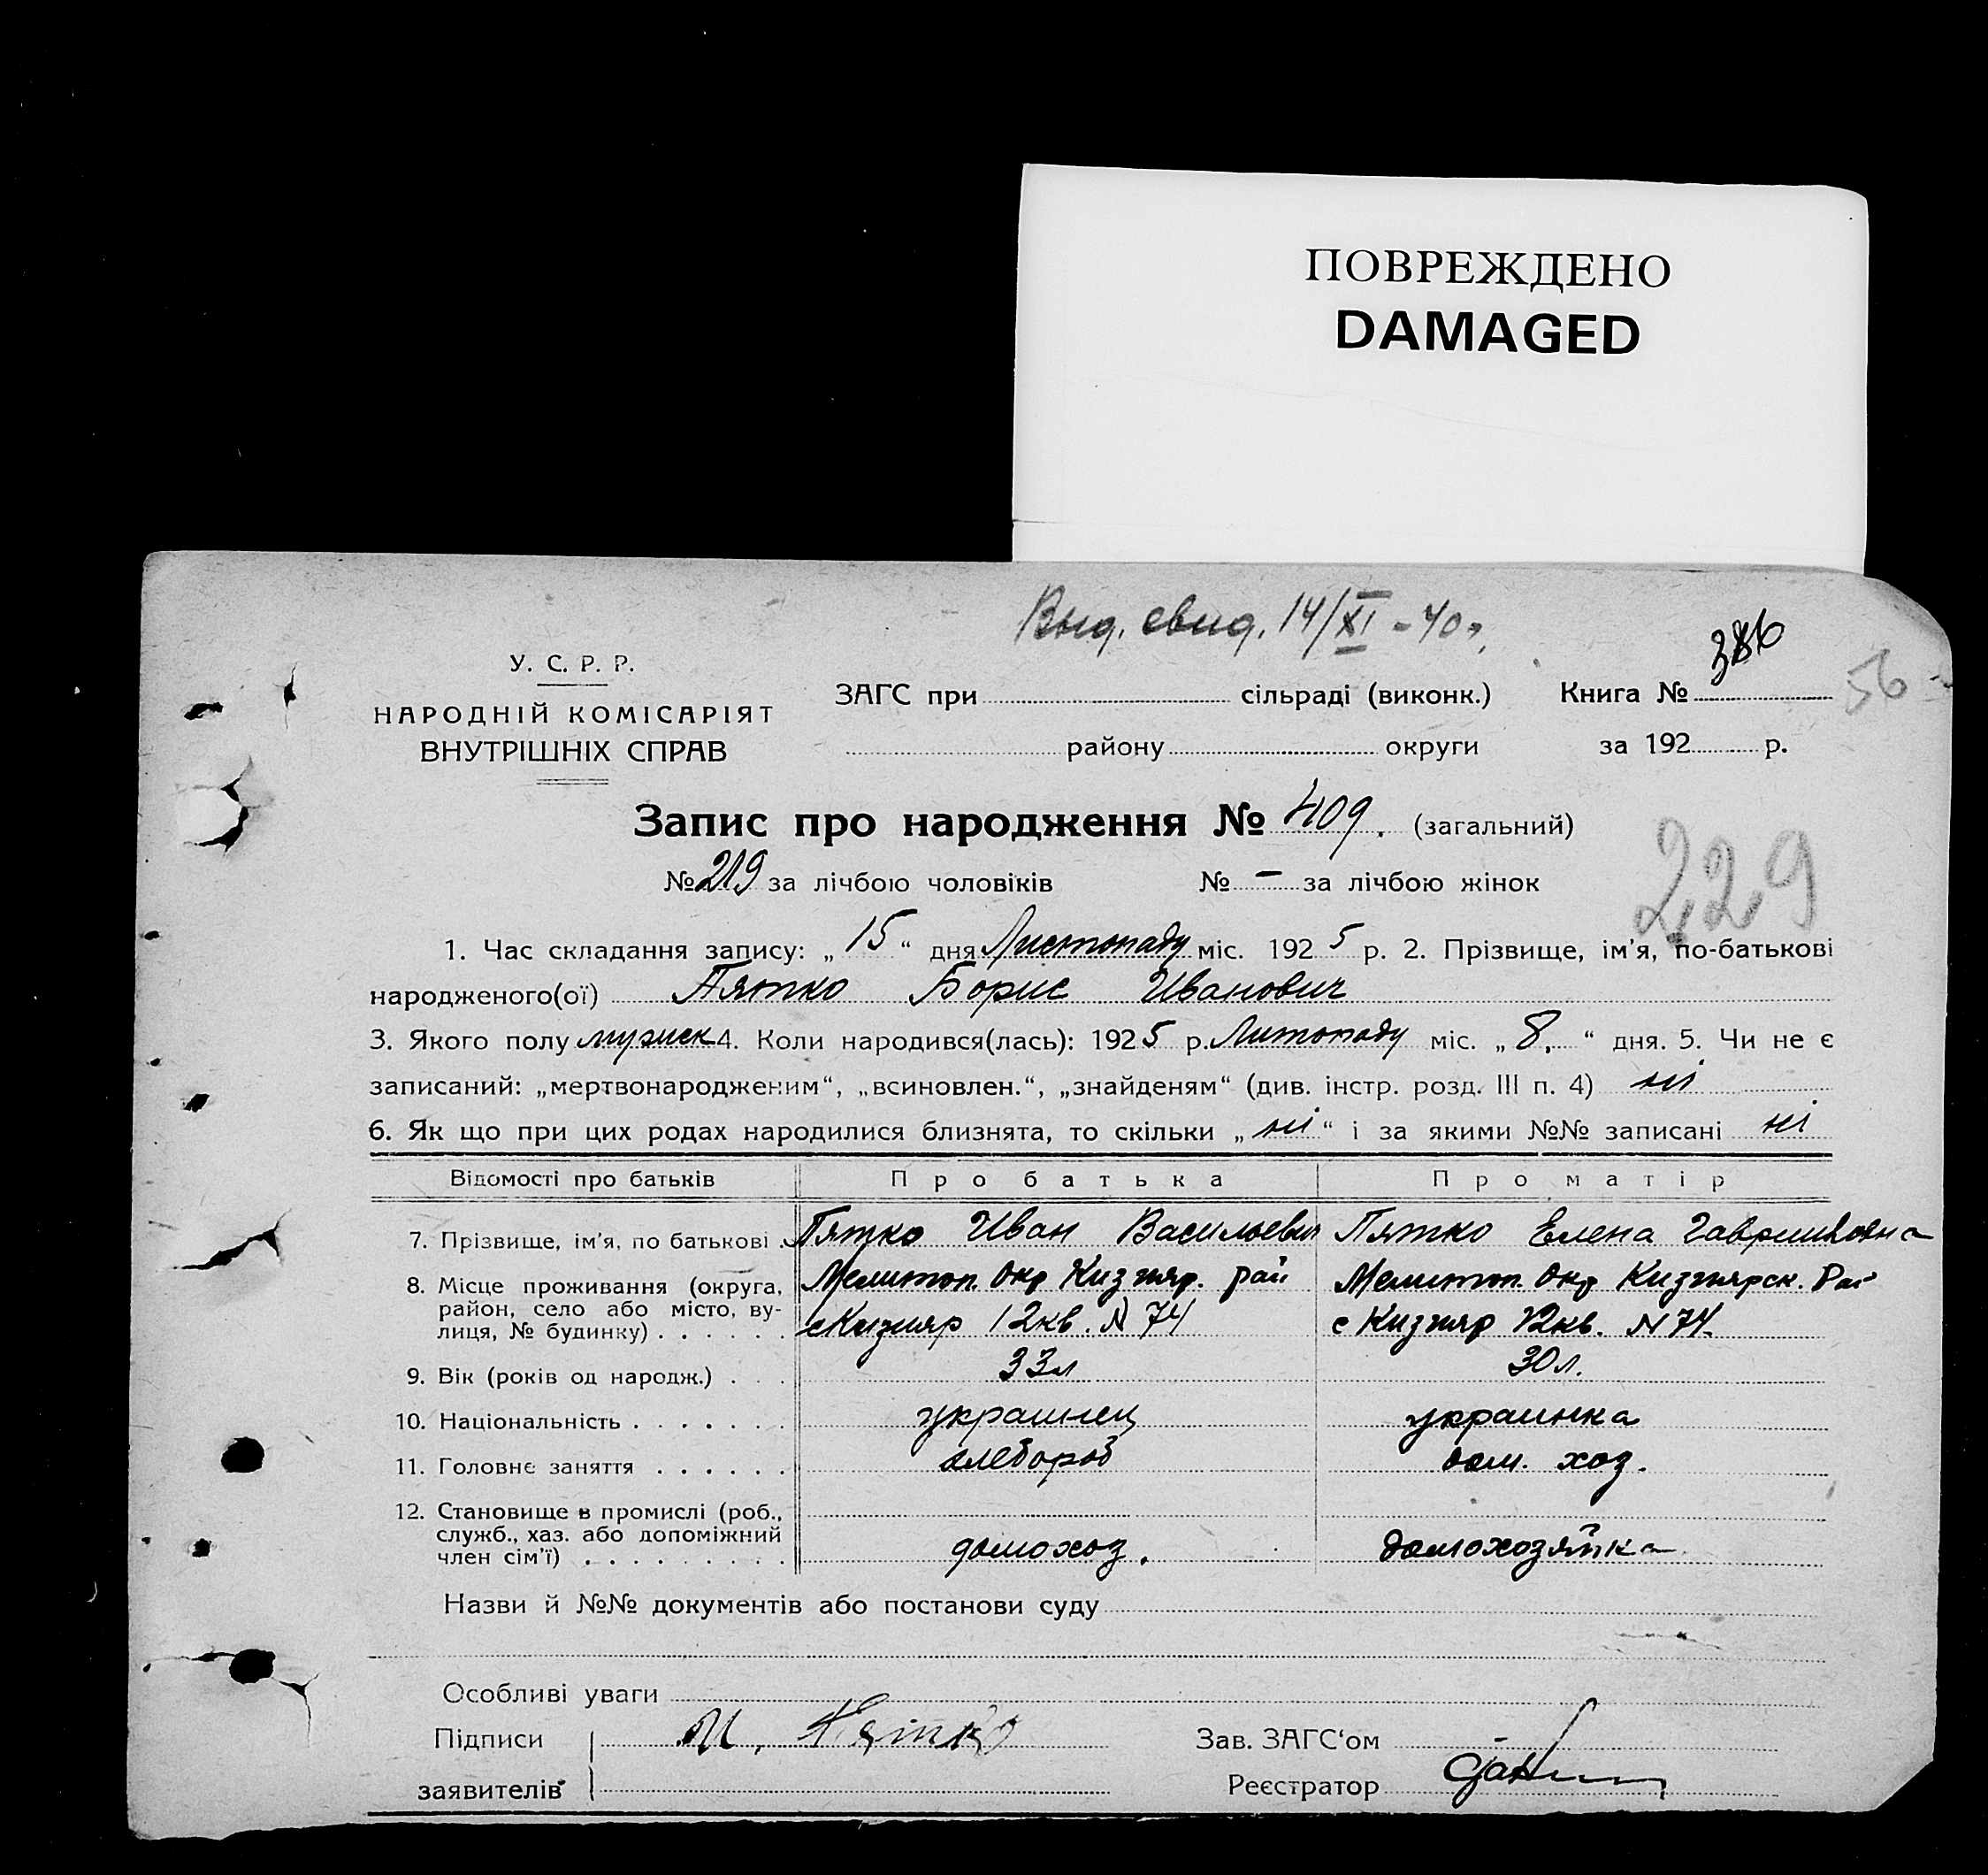 ПОВРЕЖДЕНО
DAMAGED
Выд. свид. 14/XI - 40г.
386
56
У. С. Р. Р.
НАРОДНІЙ КОМІСАРІЯТ
ВНУТРІШНІХ СПРАВ
ЗАГС при сільраді (виконк.) Книга №
району округи за 192 р.
Запис про народження № 409. (загальний)
№ 219 за лічбою чоловіків № – за лічбою жінок
229
1. Час складання запису: „ 15 “ дня Листопаду міс. 192 5 р. 2. Прізвище, ім’я, по-батькові
народженого(ої) Пятко Борис Иванович
3. Якого полу мужеск 4. Коли народився(лась): 192 5 р. Литопаду міс. „ 8. “ дня. 5. Чи не є
записаний: „мертвонародженим“, „всиновлен.“, „знайденям“ (див. інстр. розд. III п. 4) ні
6. Як що при цих родах народилися близнята, то скільки „ ні “ і за якими №№ записані ні
Відомості про батьків Про батька Про матір
7. Прізвище, ім’я, по батькові . Пятко Иван Васильевич Пятко Елена Гавриловна
8. Місце проживання (округа, Мелитоп. Окр Кизияр. рай Мелитоп. Окр Кизиярск. Рай
район, село або місто, ву-
лиця, № будинку) . . . . . . с Кизияр 12кв. N 74 с Кизияр 12кв. N 74.
9. Вік (років од народж.) . . . 33л 30л.
10. Національність . . . . . . . украинец украинка
11. Головнє заняття . . . . . . хлебороб дом. хоз.
12. Становище в промислі (роб.,
служб., хаз. або допоміжний
член сім’ї) . . . . . . . . . домохоз. домохозяйка
Назви й №№ документів або постанови суду
Особливі уваги
Підписи И. Пятко Зав. ЗАГС‘ом
заявителів Реєстратор